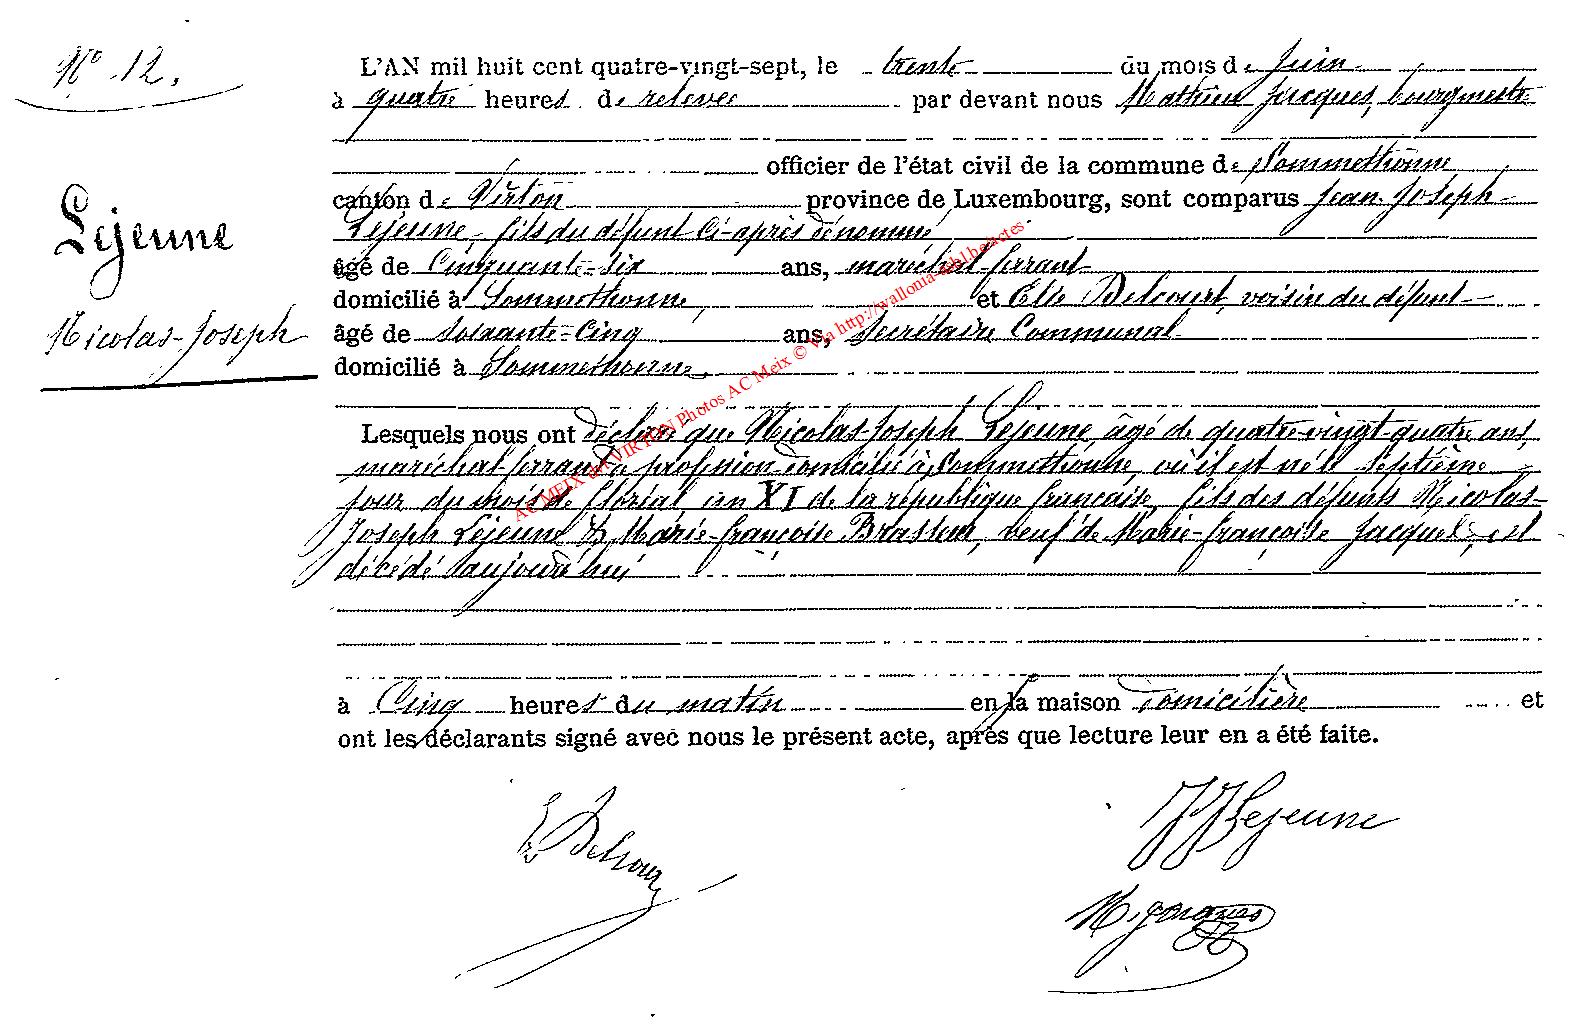 N° 12.
Lejeune
Nicolas-Joseph
L'AN mil huit cent quatre-vingt-sept, le trente du mois de Juin
à quatre heures de relevée par devant nous Mathieu Jacques, bourgmestre
officier de l'état civil de la commune de Sommethonne
canton de Virton province de Luxembourg, sont comparus Jean-Joseph
Lejeune, fils du défunt ci-après dénommé
âgé de Cinquante-six ans, maréchal-ferrant
domicilié à Sommethonne, et Elie Delcourt, voisin du défunt
âgé de soixante-cinq ans, Secrétaire Communal
domicilié à Sommethonne.
Lesquels nous ont déclaré que Nicolas-Joseph Lejeune, âgé de quatre-vingt-quatre ans,
maréchal-ferrant de profession, domicilié à Sommethonne, où il est né le septième
jour du mois de floréal, an XI de la république française, fils des défunts Nicolas-
Joseph Lejeune & Marie-françoise Brasseur, veuf de Marie-françoise Jacques, est
décédé aujourd'hui
à Cinq heures du matin en sa maison domicilière et
ont les déclarants signé avec nous le présent acte, après que lecture leur en a été faite.
E Delcour
JJ Lejeune
M. Jacques
AC MEIX dct VIRTON Photos AC Meix © Via http://wallonia-asbl.be/actes